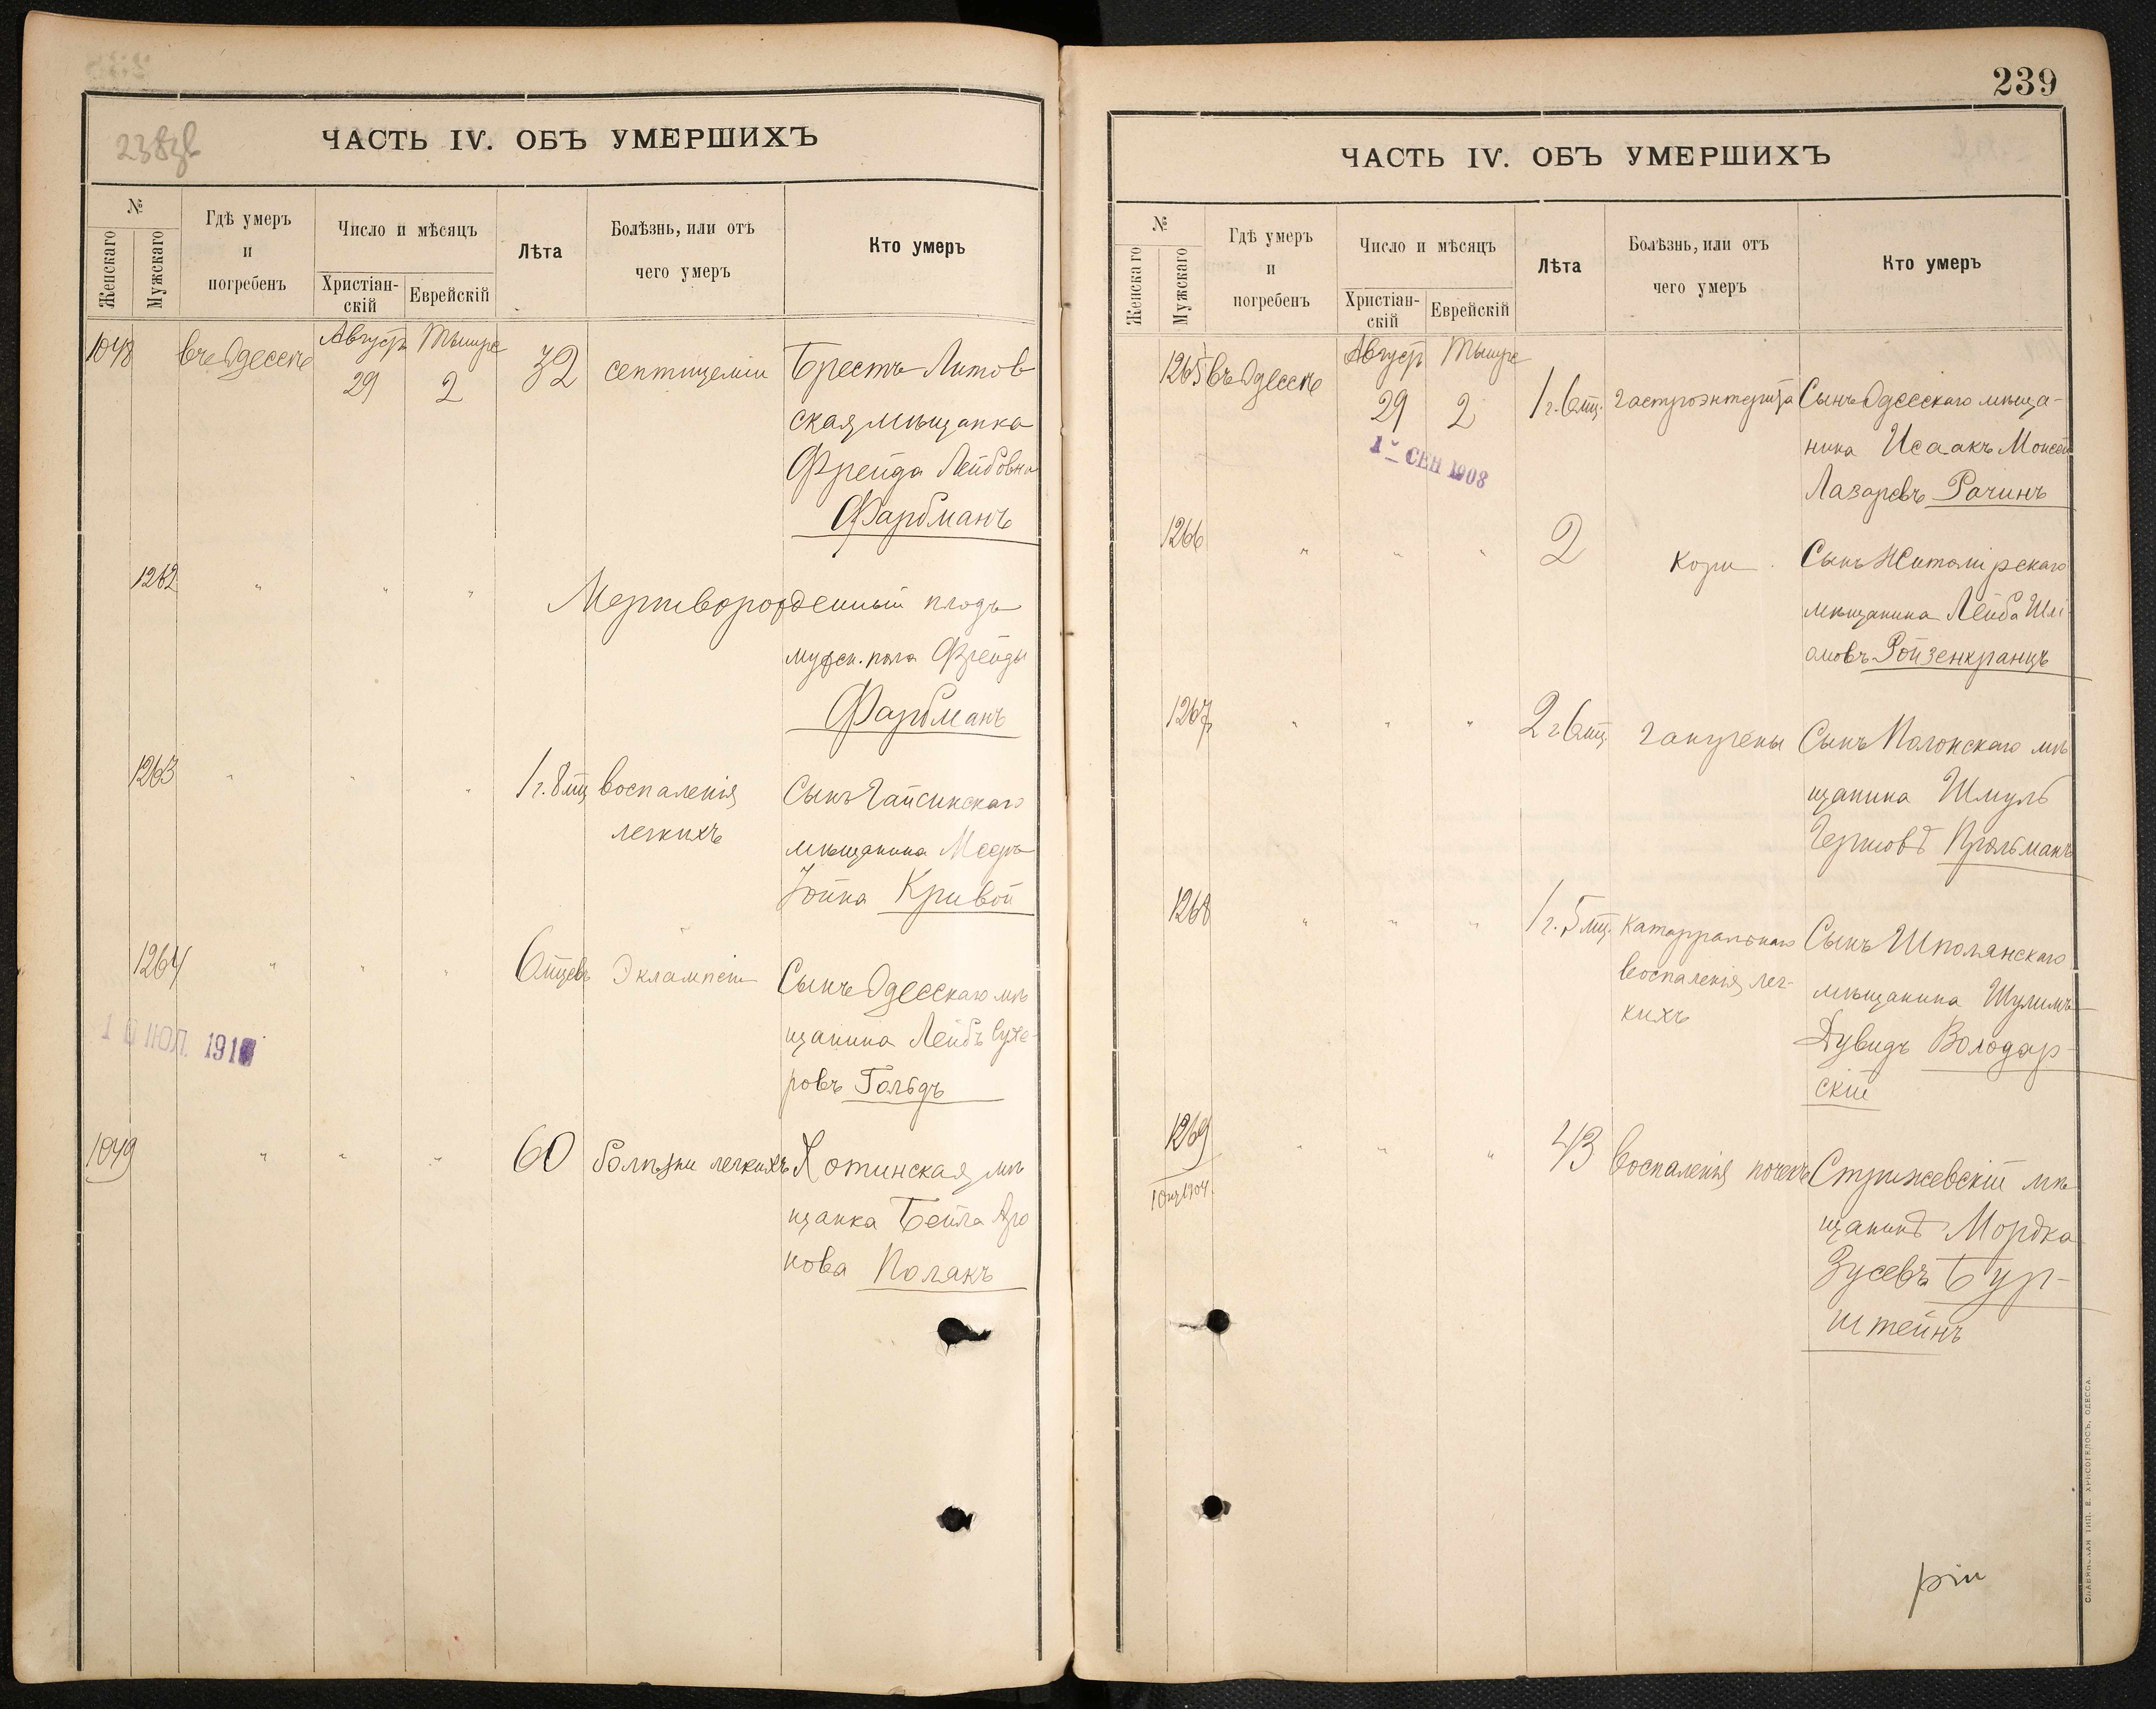 ЧАСТЬ IV. ОБЪ УМЕРШИХЪ
№
Женскаго
Мужскаго
Гдѣ умеръ
и
погребенъ
Число и мѣсяцъ
Христіан-
скій
Еврейскій
Лѣта
Болѣзнь, или отъ
чего умеръ
Кто умеръ
1048
въ Одессѣ
Август
29
Тишре
2
32
септицеміи
Брестъ Литов
ская мѣщанка
Фрейда Лейбовна
Фарбманъ
1262
" " "
Мертворожденный плодъ
мужск. пола Фрейды
Фарбманъ
1263
" " "
1 г. 8 мц
воспаленія
легкихъ
Сынъ Гайсинскаго
мѣщанина
Кривой
1264
" " "
6 мцевъ
Эклампсіи
Сынъ Одесскаго мѣ
щанина Лейбъ Сухе-
ровъ Гольдъ
ІЮЛ. 191
1049
" " "
60
болѣзни легкихъ
Хотинская мѣ
щанка Бейла Аро
нова Полякъ
239
ЧАСТЬ IV. ОБЪ УМЕРШИХЪ
№
Женскаго
Мужскаго
Гдѣ умеръ
и
погребенъ
Число и мѣсяцъ
Христіан-
скій
Еврейскій
Лѣта
Болѣзнь, или отъ
чего умеръ
Кто умеръ
1265
въ Одессѣ
Август
29
Тишре
2
1 СЕН 1908
1 г. 6 мц.
гастроэнтерита
Сынъ Одесскаго мѣща-
нина Исаакъ Моисей
Лазаревъ Рачинъ
1266
" " "
2
Кори
Сынъ Житомірскаго
мѣщанина Лейба Шлі
омовъ Ройзенкранцъ
1267
" " "
2 г 6 мц
гангрены
Сынъ Полонскаго мѣ
щанина Шмуль
Гершовъ Прольманъ
1268
" " "
1 г. 5 мц.
Катарральнаго
воспаленія лег-
кихъ
Сынъ Шполянскаго
мѣщанина Шулимъ
Дувидъ Володар-
скій
1269
" " "
43
воспаленія почекъ
Стрижевскій мѣ
щанинъ Мордка
Зусевъ Бур-
штейнъ
СЛАВЯНСКАЯ ТИП. Е. ХРИСОГЕЛОСЪ, ОДЕССА.